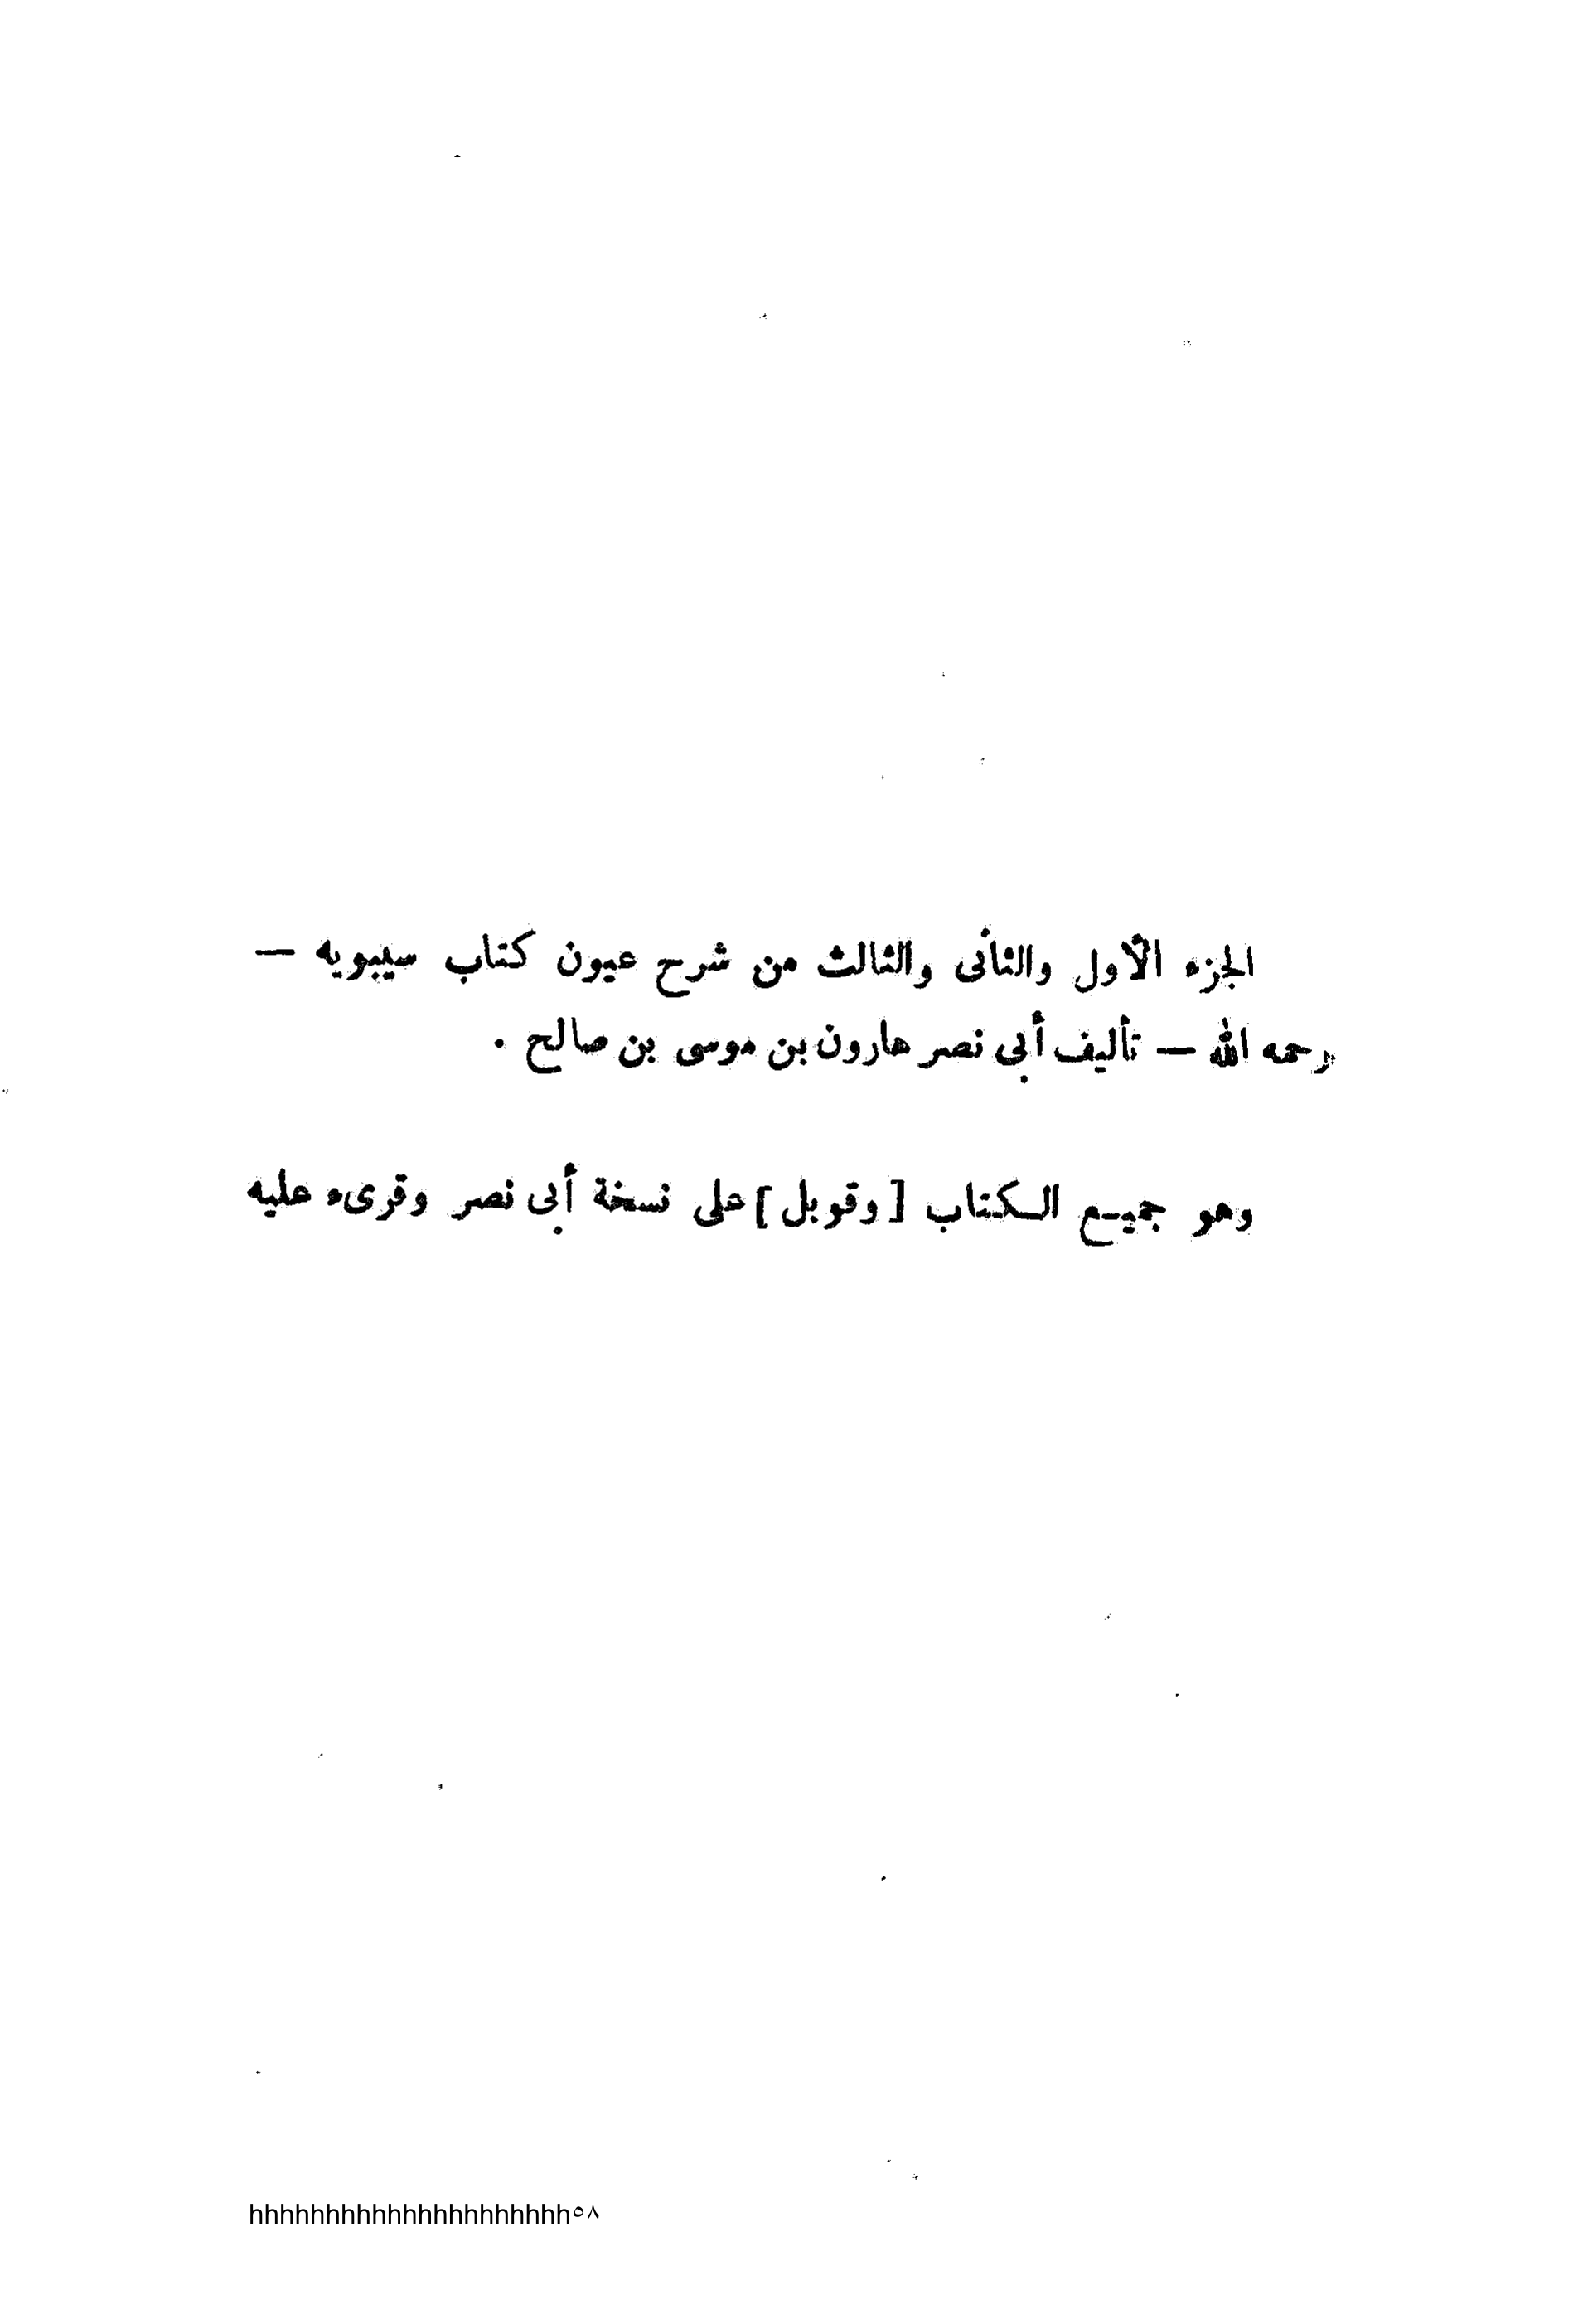 الجزء الأول والثانى والثالث من شرح عيون كتاب سيبويه —
رحمه الله — تأليف أبى نصر هارون بن موسى بن صالح .
وهو جميع الكتاب [ وقوبل ] على نسخة أبى نصر وقرىء عليه
hhhhhhhhhhhhhhhhhhhhh٥٨